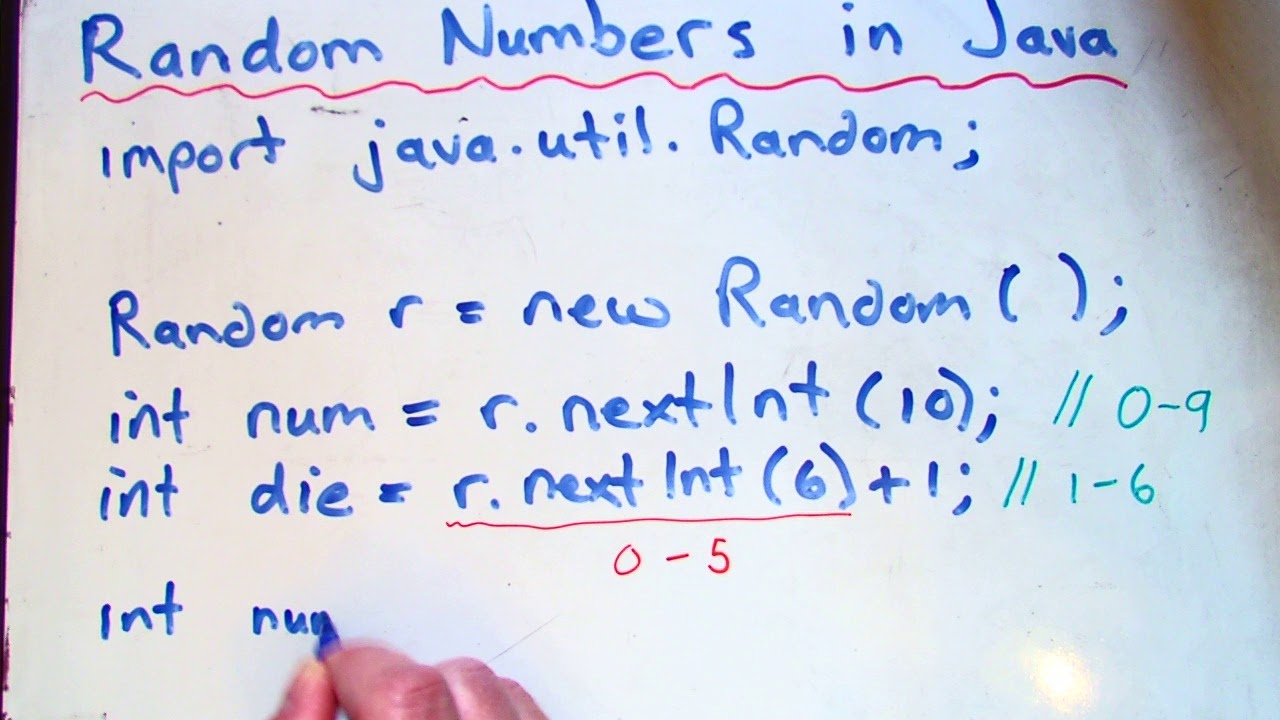 Random Numbers in Java
import java.util.Random;
Random r = new Random( );
int num = r.nextInt(10); // 0-9
int die = r.nextInt(6)+1; // 1-6
0-5
int num